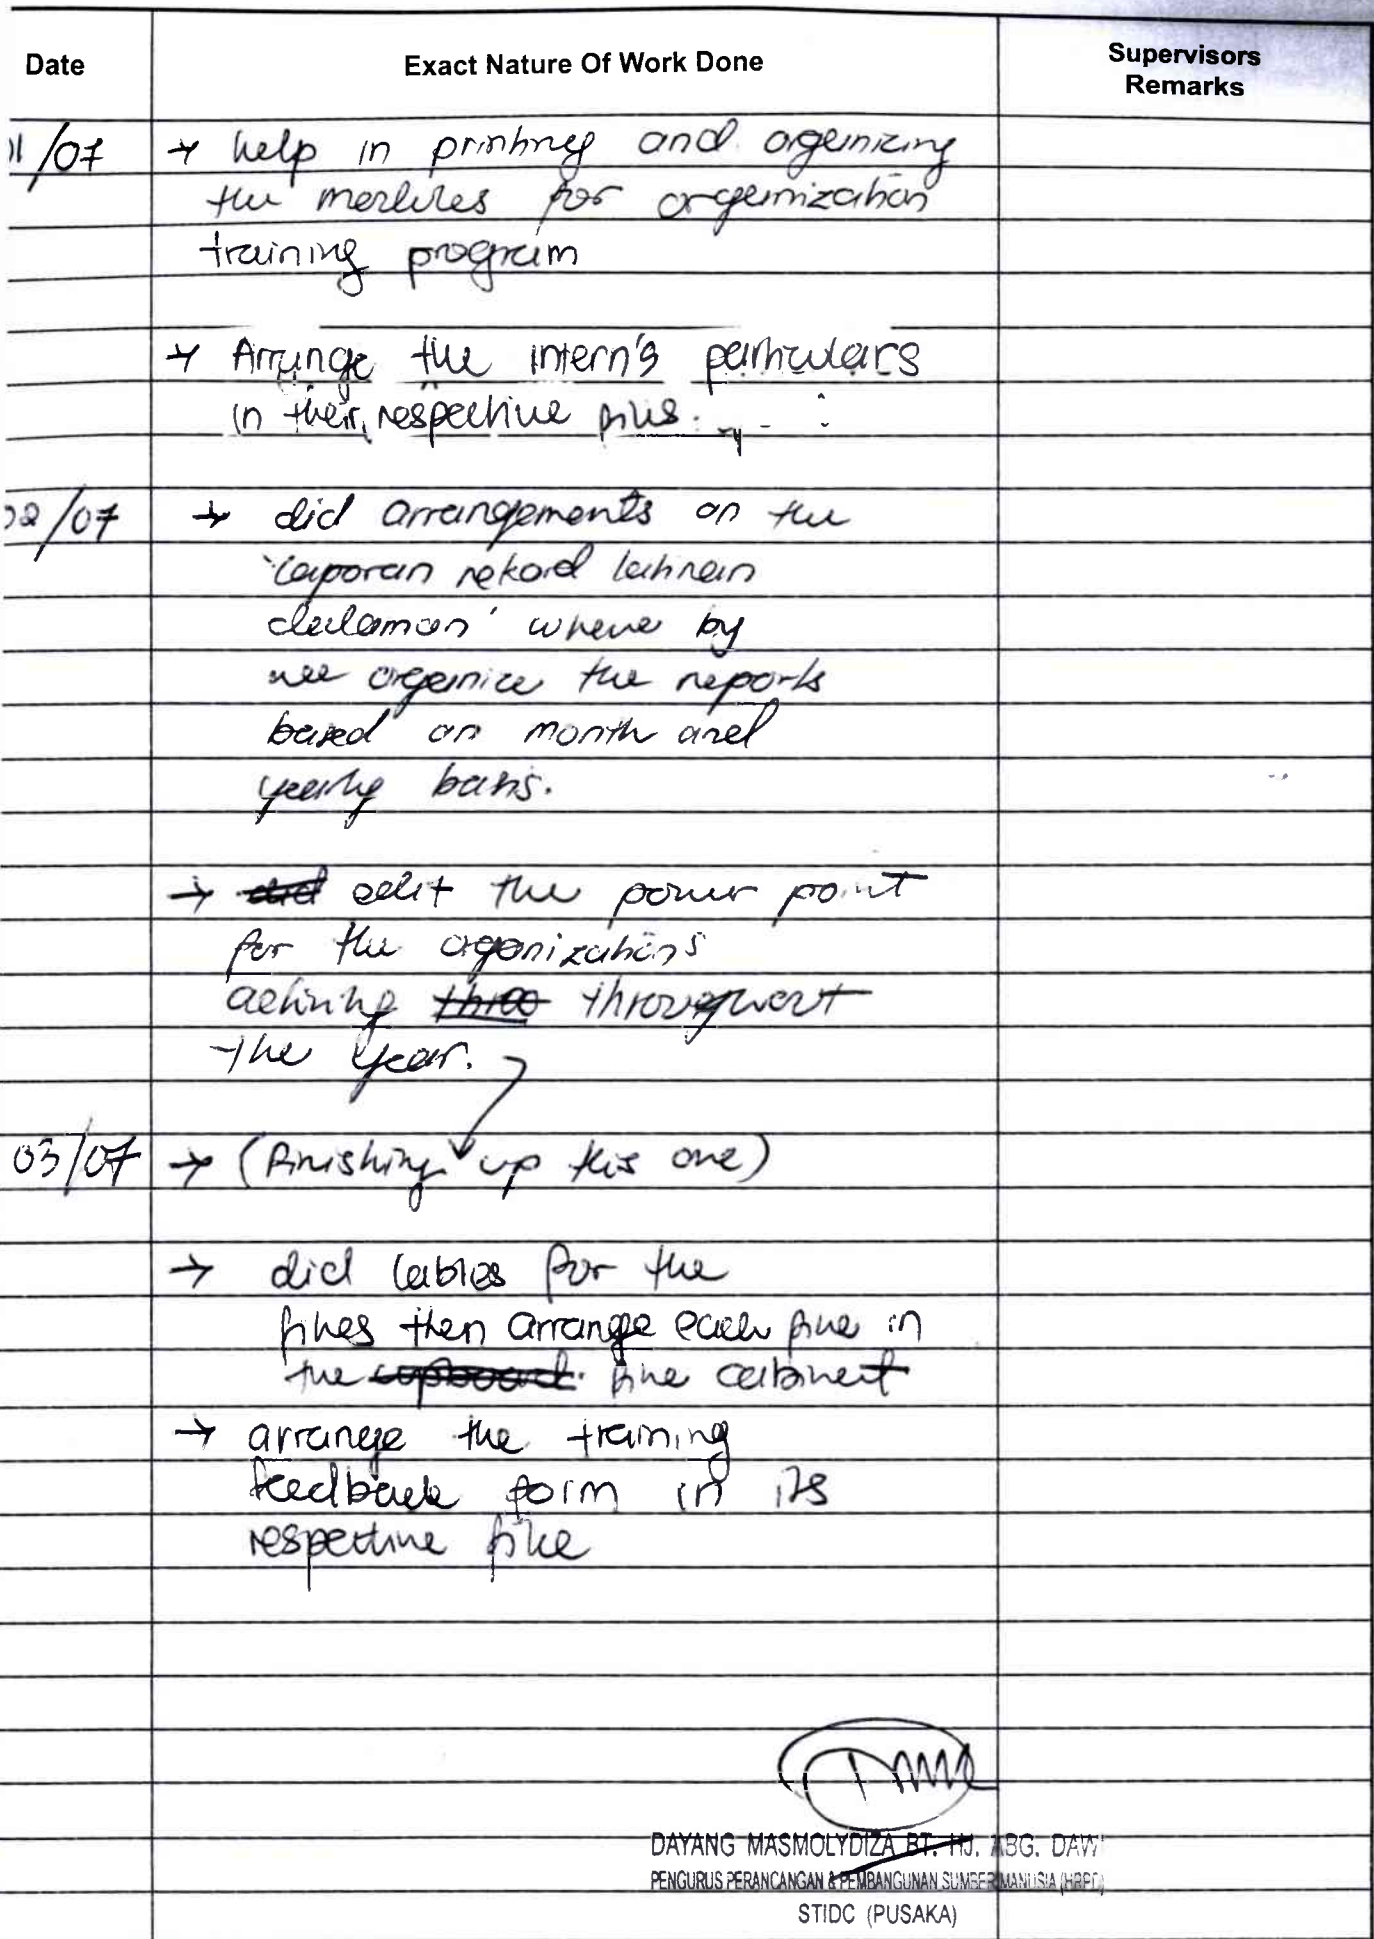 Date Exact Nature Of Work Done Supervisors
Remarks
01/07 → help in printing and orgenizing
the for orgemization
training program
→ Arrange the intern's particulars
in their respective files.
02/07 → did arrangements on the
'laporan rekod latihan
dalaman' where by
we organize the reports
based on month and
yearly basis.
→ did edit the power point
for the oganizations
throughout
the year.
03/07 → (finishing up this one)
→ did lables for the
files then arrange each file in
the cupboard file cabinet
→ arrange the training
feedback form in its
respective file
DAYANG MASMOLYDIZA BT. HJ. ABG. DAWI
PENGURUS PERANCANGAN & PEMBANGUNAN SUMBER MANUSIA (HRPD)
STIDC (PUSAKA)